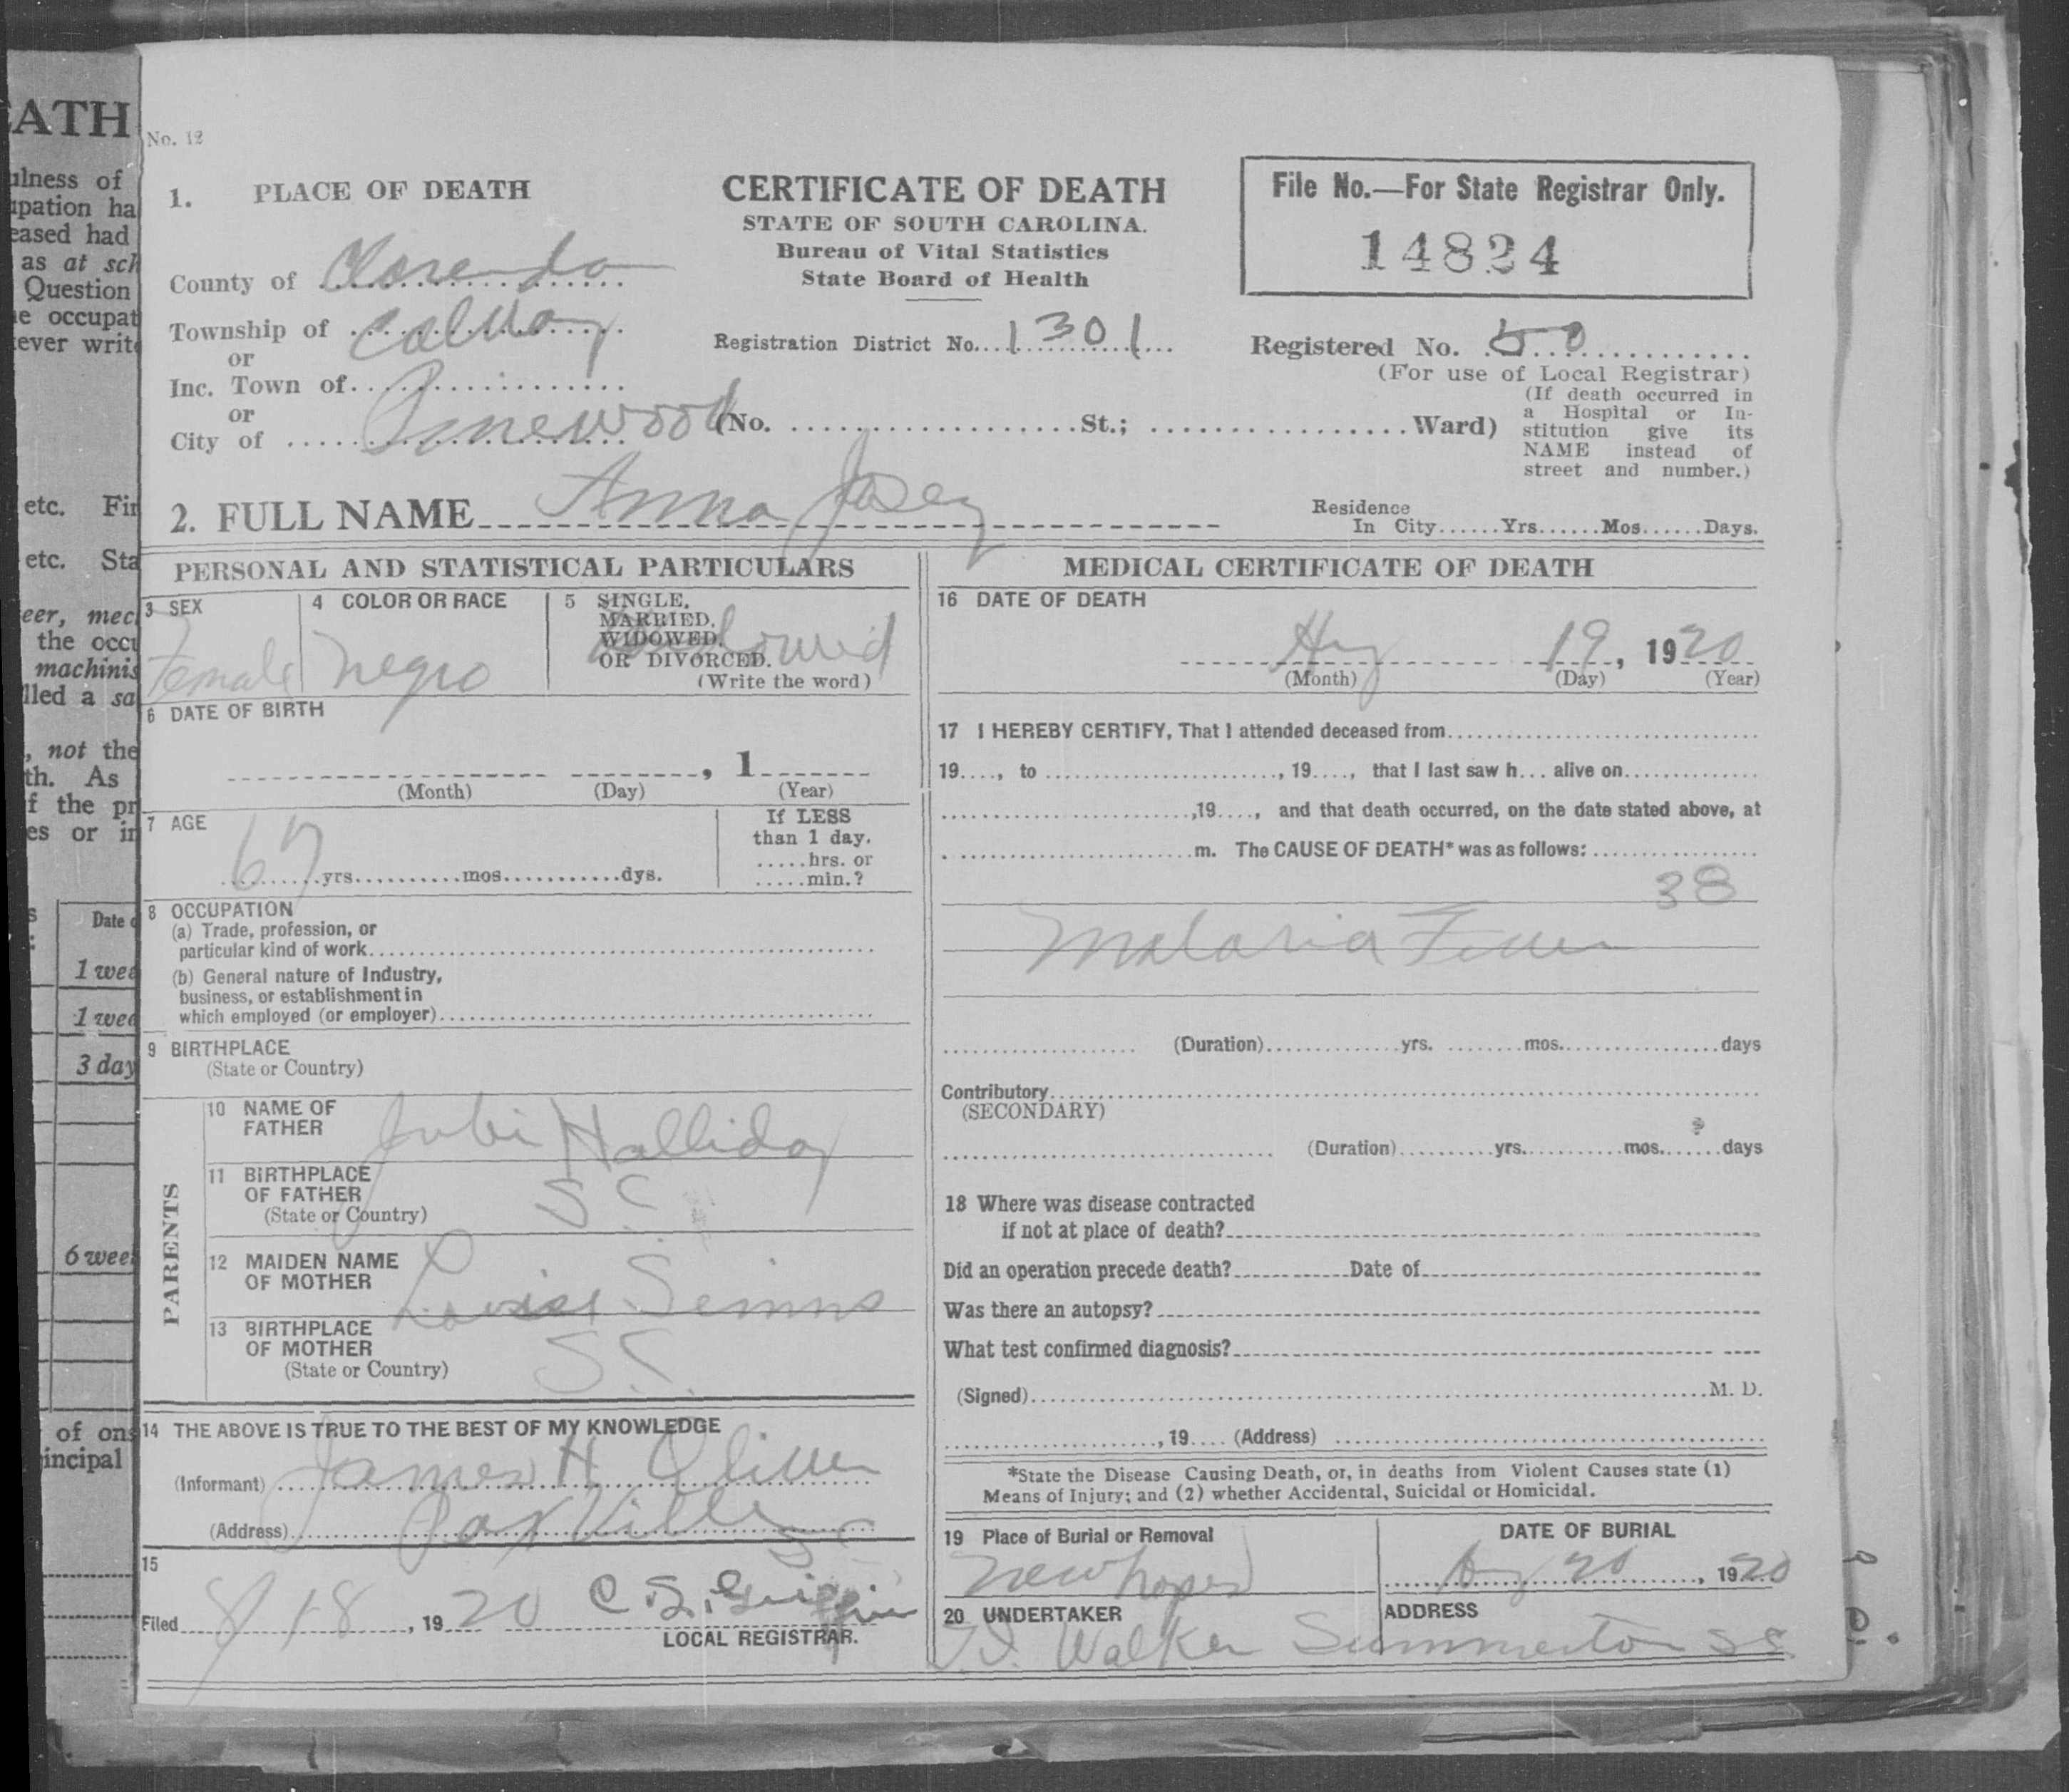 EATH
ulness of
upation ha
eased had
as at sch
Question
e occupat
ever write
etc. Fir
etc. Sta
eer, mecl
the occu
machinis
lled a sa
, not the
th. As
f the pr
es or in
Date o
1 wee
1 wee
3 day
6 wee
of ons
incipal
No. 12
1. PLACE OF DEATH
CERTIFICATE OF DEATH
STATE OF SOUTH CAROLINA.
Bureau of Vital Statistics
State Board of Health
File No.—For State Registrar Only.
14824
County of Clarendo
Township of Calvary
or
Inc. Town of
or
City of Pinewood (No. St.; Ward)
Registration District No. 1301
Registered No. 50
(For use of Local Registrar)
(If death occurred in
a Hospital or In-
stitution give its
NAME instead of
street and number.)
2. FULL NAME Anna Josey
Residence
In City......Yrs......Mos......Days.
PERSONAL AND STATISTICAL PARTICULARS
3 SEX
Female
4 COLOR OR RACE
Negro
5 SINGLE,
MARRIED,
WIDOWED,
OR DIVORCED.
(Write the word)
6 DATE OF BIRTH
, 1
(Month) (Day) (Year)
7 AGE
67 yrs. mos. dys.
If LESS
than 1 day.
.....hrs. or
.....min.?
8 OCCUPATION
(a) Trade, profession, or
particular kind of work
(b) General nature of Industry,
business, or establishment in
which employed (or employer)
9 BIRTHPLACE
(State or Country)
PARENTS
10 NAME OF
FATHER Halliday
11 BIRTHPLACE
OF FATHER
(State or Country) S C
12 MAIDEN NAME
OF MOTHER
13 BIRTHPLACE
OF MOTHER
(State or Country) S. C.
14 THE ABOVE IS TRUE TO THE BEST OF MY KNOWLEDGE
(Informant) James H
(Address) Paxville S C
15
Filed 8/18, 1920 C. S. Griffin
LOCAL REGISTRAR.
MEDICAL CERTIFICATE OF DEATH
16 DATE OF DEATH
19, 1920
(Month) (Day) (Year)
17 I HEREBY CERTIFY, That I attended deceased from
19...., to , 19...., that I last saw h... alive on
,19...., and that death occurred, on the date stated above, at
m. The CAUSE OF DEATH* was as follows:
38
Malaria Fever
(Duration) yrs. mos. days
Contributory
(SECONDARY)
(Duration) yrs. mos. days
18 Where was disease contracted
if not at place of death?
Did an operation precede death? Date of
Was there an autopsy?
What test confirmed diagnosis?
(Signed) M. D.
, 19.... (Address)
*State the Disease Causing Death, or, in deaths from Violent Causes state (1)
Means of Injury; and (2) whether Accidental, Suicidal or Homicidal.
19 Place of Burial or Removal
New hope
DATE OF BURIAL
20, 1920
20 UNDERTAKER
Walker
ADDRESS
Summerton S C